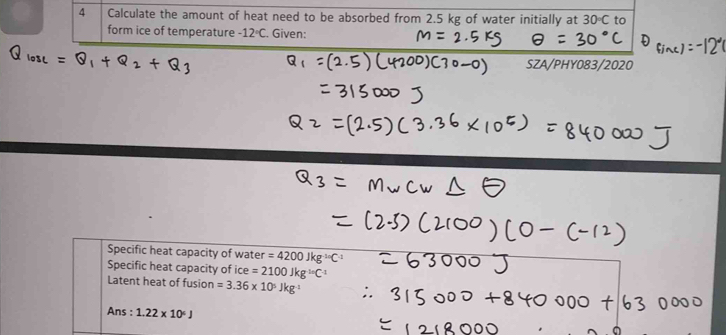 4 Calculate the amount of heat need to be absorbed from 2.5 kg of water initially at 30°C to
form ice of temperature -12°C. Given:
M = 2.5 kg θ = 30°C θ final = -12°C
SZA/PHY083/2020
Q lose = Q1 + Q2 + Q3
Q1 = (2.5)(4200)(30-0)
= 315000 J
Q2 = (2.5)(3.36 × 10^5) = 840000 J
Q3 = Mw Cw Δθ
= (2.5)(2100)(0-(-12)
= 63000 J
Specific heat capacity of water = 4200 Jkg⁻¹°C⁻¹
Specific heat capacity of ice = 2100 Jkg⁻¹°C⁻¹
Latent heat of fusion = 3.36 x 10⁵ Jkg⁻¹
Ans : 1.22 x 10⁶ J
∴ 315000 + 840000 + 630000
= 1218000